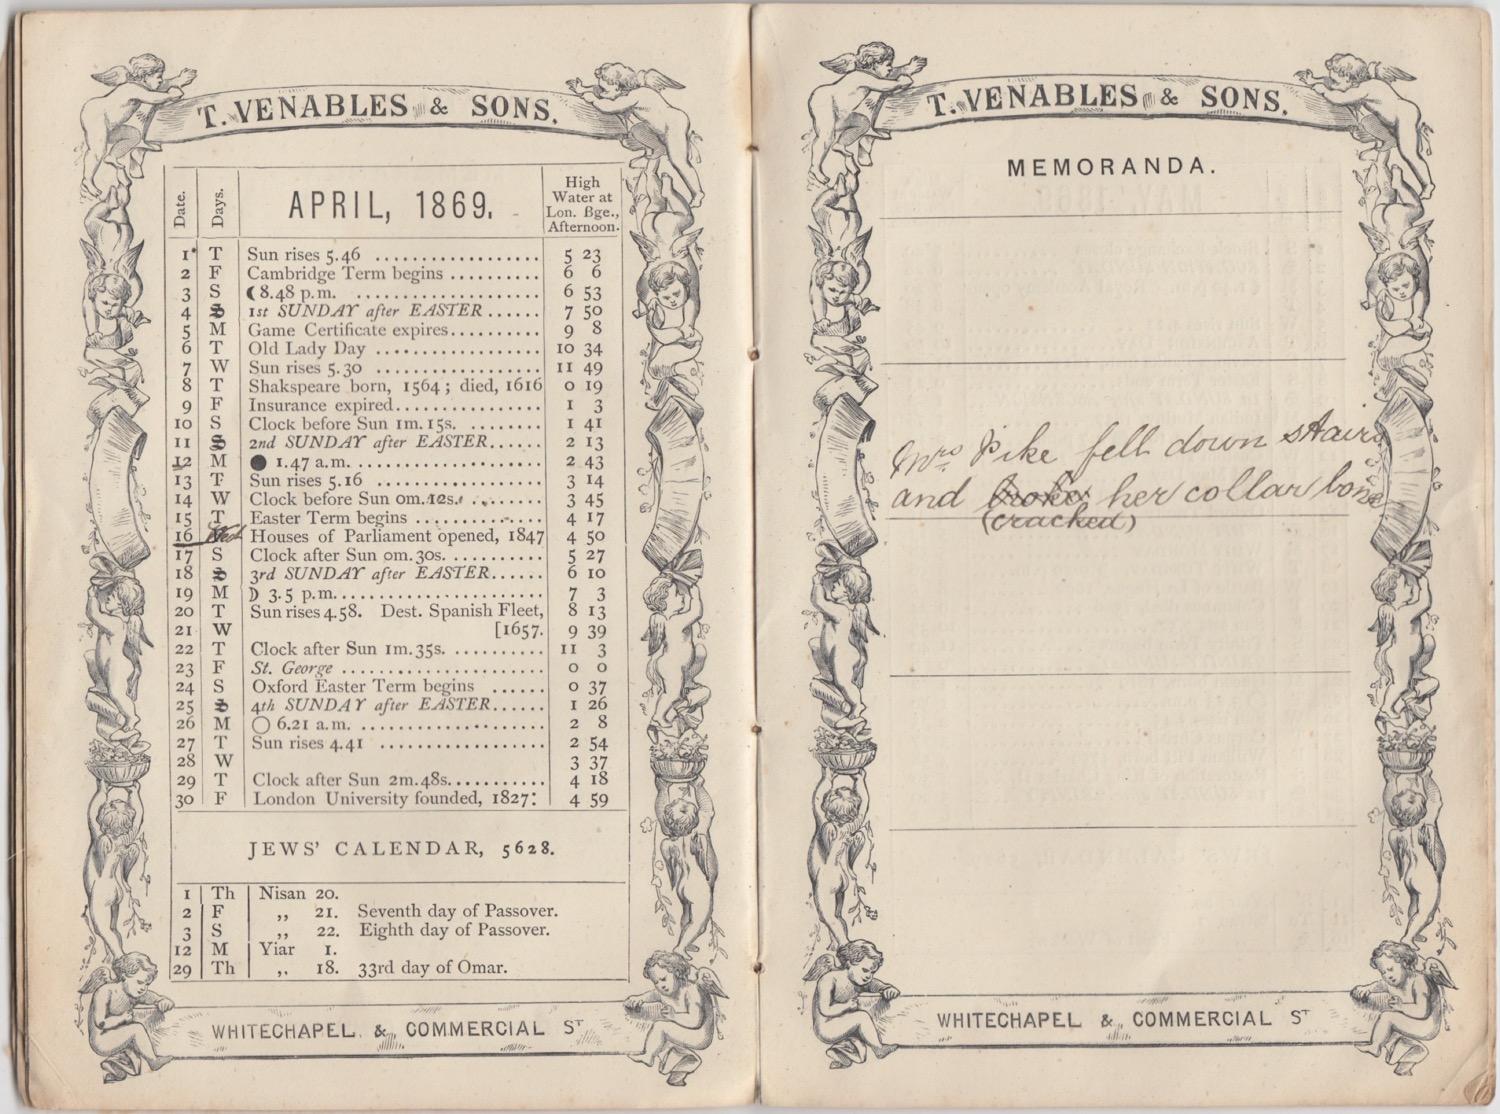 T. VENABLES & SONS.
Date. Days. APRIL, 1869. High Water at Lon. Bge., Afternoon.
1 T Sun rises 5.46 .................. 5 23
2 F Cambridge Term begins .......... 6 6
3 S ☾ 8.48 p.m. .................. 6 53
4 S 1st SUNDAY after EASTER ...... 7 50
5 M Game Certificate expires.......... 9 8
6 T Old Lady Day .................. 10 34
7 W Sun rises 5.30 .................. 11 49
8 T Shakspeare born, 1564; died, 1616 0 19
9 F Insurance expired................ 1 3
10 S Clock before Sun 1m. 15s. ......... 1 41
11 S 2nd SUNDAY after EASTER...... 2 13
12 M ● 1.47 a.m. .................. 2 43
13 T Sun rises 5.16 .................. 3 14
14 W Clock before Sun 0m.12s. ........ 3 45
15 T Easter Term begins ............. 4 17
16 Houses of Parliament opened, 1847 4 50
17 S Clock after Sun 0m. 30s. .......... 5 27
18 S 3rd SUNDAY after EASTER...... 6 10
19 M ☽ 3.5 p.m. .................. 7 3
20 T Sun rises 4.58. Dest. Spanish Fleet, 8 13
21 W [1657. 9 39
22 T Clock after Sun 1m. 35s. .......... 11 3
23 F St. George .................. 0 0
24 S Oxford Easter Term begins ...... 0 37
25 S 4th SUNDAY after EASTER...... 1 26
26 M ○ 6.21 a.m. .................. 2 8
27 T Sun rises 4.41 .................. 2 54
28 W 3 37
29 T Clock after Sun 2m. 48s. .......... 4 18
30 F London University founded, 1827: 4 59
JEWS' CALENDAR, 5628.
1 Th Nisan 20.
2 F ,, 21. Seventh day of Passover.
3 S ,, 22. Eighth day of Passover.
12 M Yiar 1.
29 Th ,, 18. 33rd day of Omar.
WHITECHAPEL & COMMERCIAL ST
T. VENABLES & SONS.
MEMORANDA.
Mrs Pike fell down stairs
and broke her collar bone
(cracked)
WHITECHAPEL & COMMERCIAL ST